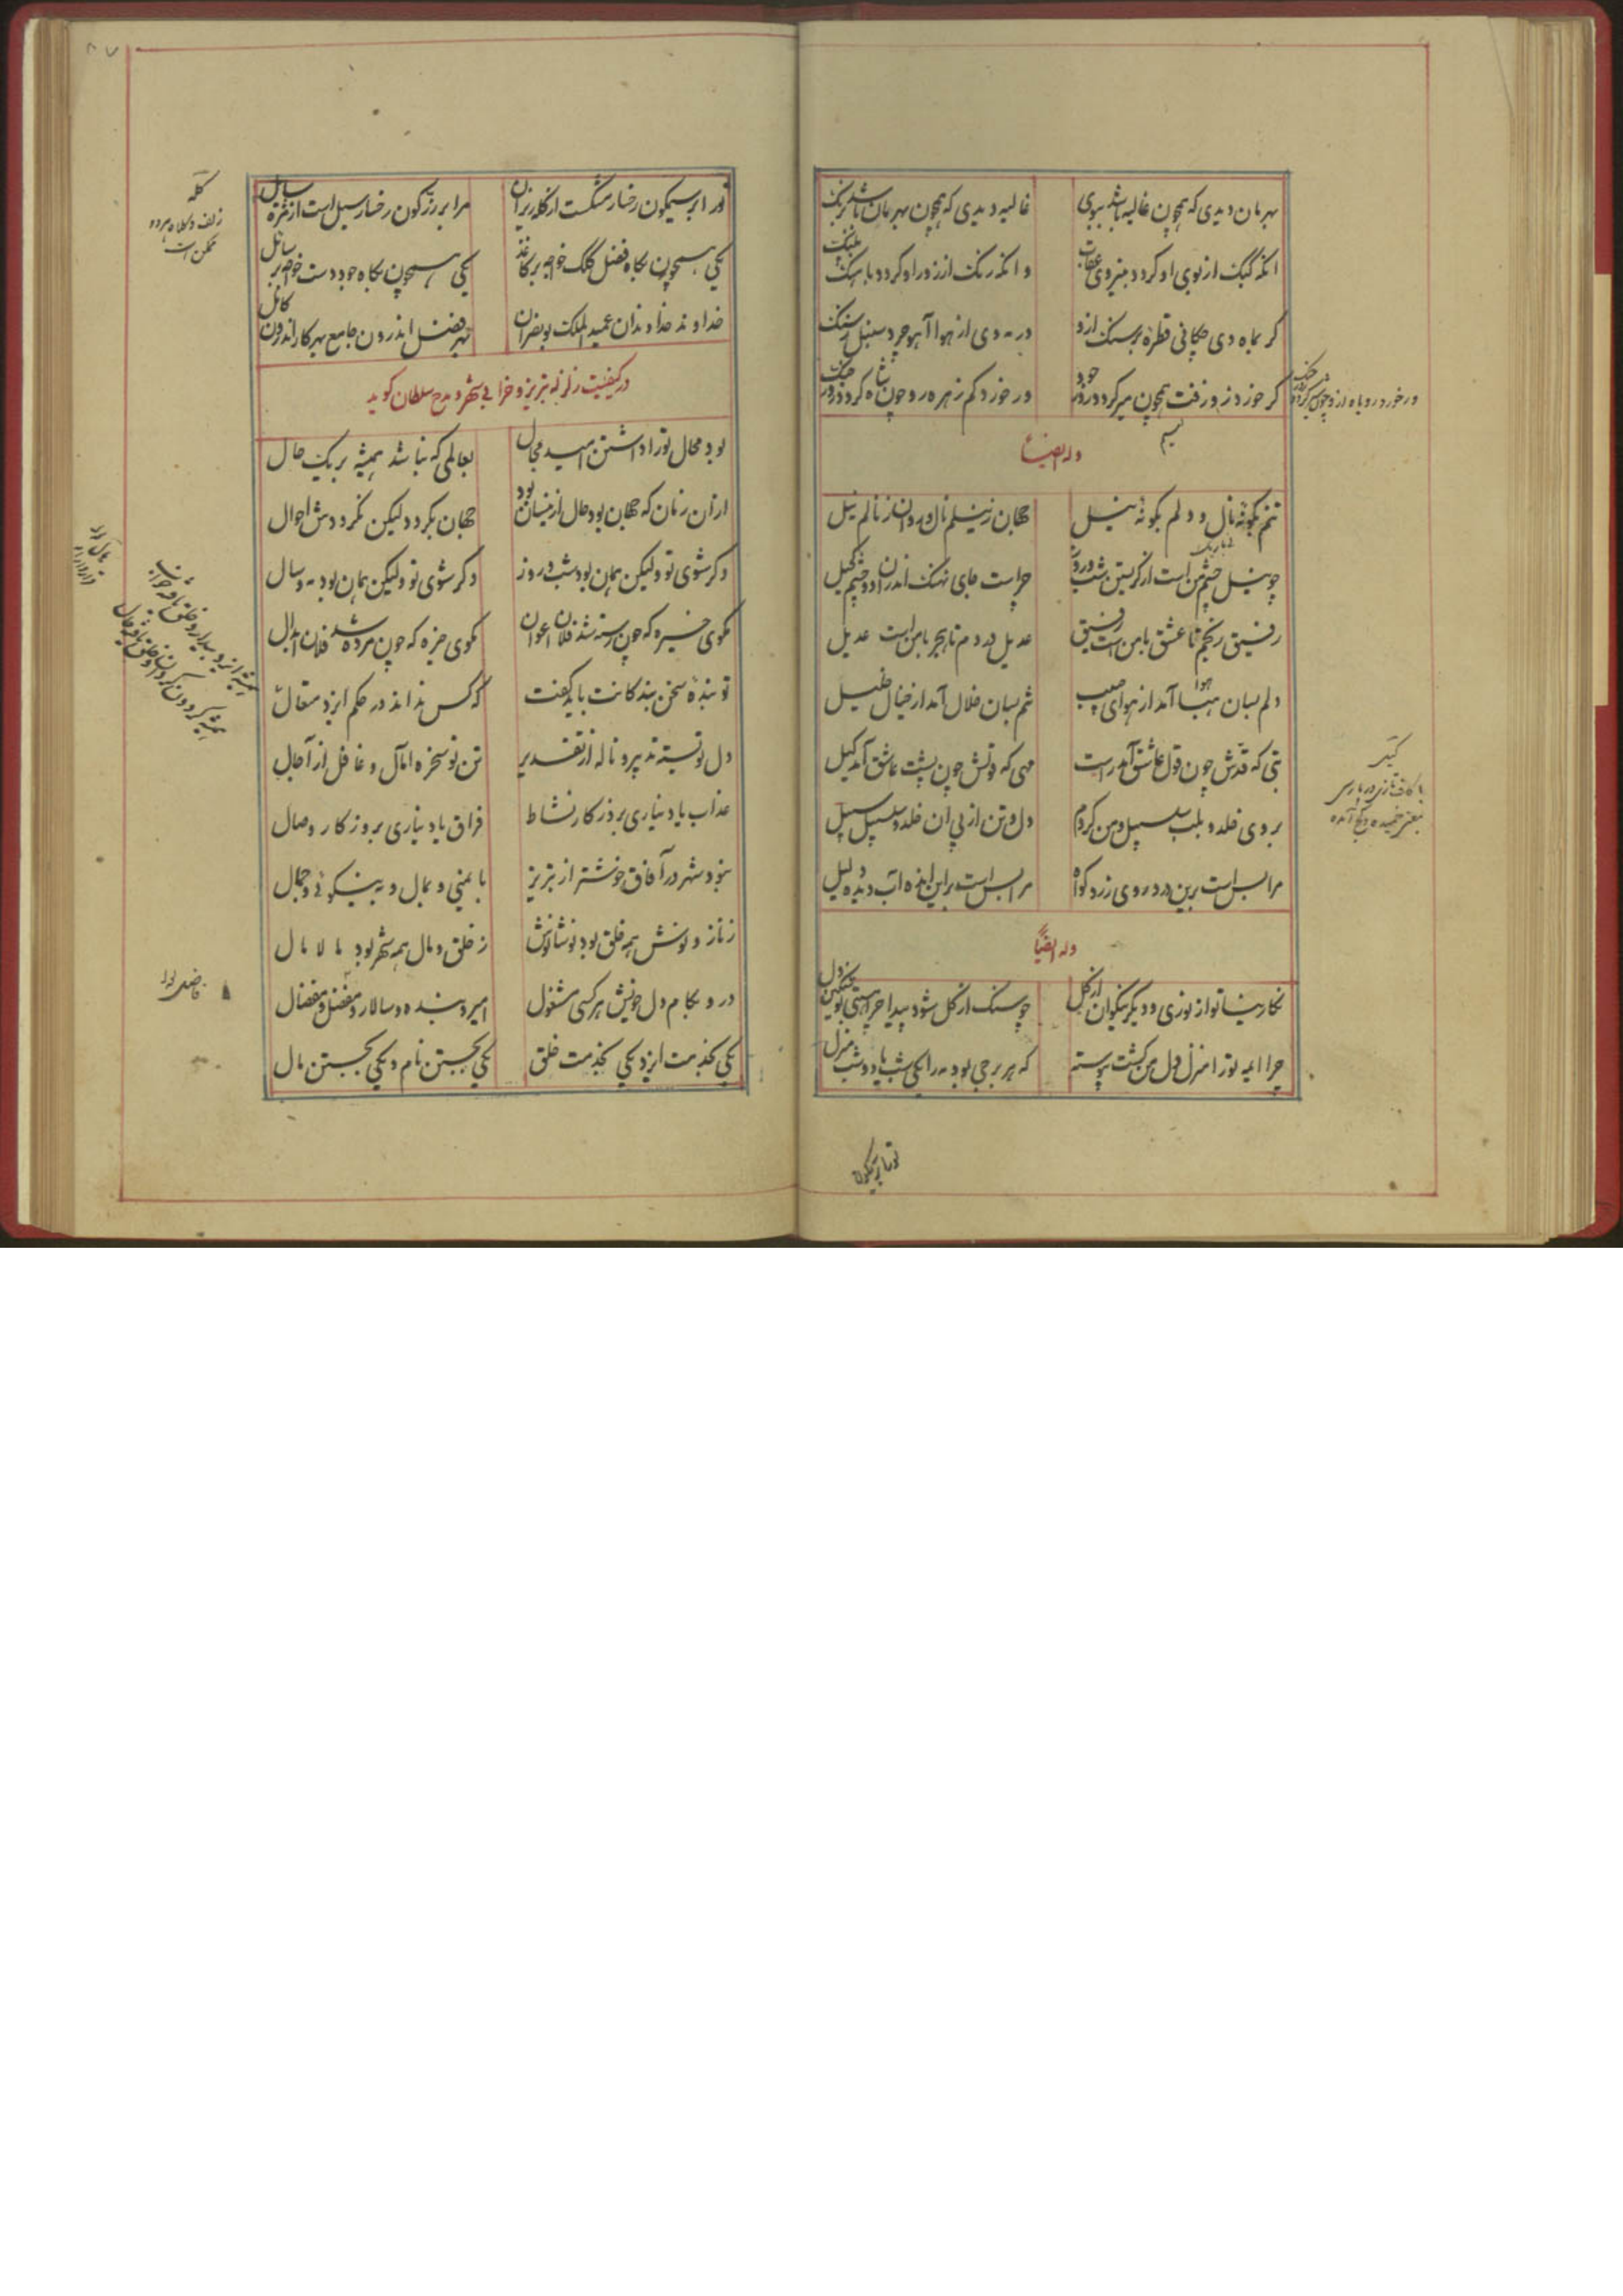 بهرمان دیدی که همچون غالیه باشد ببوی
غالیه دیدی که همچون بهرمان باشد برنک
انکه کبک از بوی او کردد بنیروی عقاب
وانکه رنک از زور او کردد با سنک پلنک
کر بماه دی چکانی قطرهٔ بر سنک ازو
در مه دی از هوا آهو چرد سنبل ز سنک
کر خورد زو زفت همچون میر کردد روز جود
ور خورد کم زهره زو چون شاه کردد روز جنک
وله ایضا
تنم بگونهٔ نال و دلم بگونهٔ نیل
جهان ز نیلم نال و روان ز نالم نیل
چو نیل چشم من است از کریستن شب و روز
چراست جای نهنک اندران دو چشم کحیل
رفیق رنجم تا عشق با من است رفیق
عدیل دردم تا هجر با من است عدیل
دلم بسان هبا آمد از هوای حبیب
تنم بسان خلال آمد از خیال خلیل
بتی که قدش چون قول عاشق آمد راست
مهی که قولش چون پشت عاشق آمد کیل
بروی خلد و بلب سلسبیل و من کردم
دل و تن از پی ان خلد و سلسبیل سبیل
مرا بس است برین درد روی زرد کواه
مرا بس است براین انده آب دیده دلیل
وله ایضاً
نکارینا تو از نوری و دیکر نیکوان از کل
چو سنک از کل شود پیدا چرا هستی تو سنکین دل
چرا ایمه تو را منزل دل من کشت پیوسته
که هر برجی بود مه را یکی شب یا دو شب منزل
تو را بر سیمکون
کیل
با کاف تازی در پارسی
بمعنی خمیده و کج آمده
تو را بر سیمکون رخسار مشکست از کله ریزان
مرا بر زرکون رخسار سیل است از مژه سایل
یکی همچون بکاه فضل کلک خواجه بر کاغذ
یکی همچون بکاه جود دست خواجه بر سائل
خداوند خداوندان عمید الملک بونصر ان
بهر فضل اندرون جامع بهر کار اندرون کامل
در کیفیت زلزله تبریز و خرابی شهر و مدح سلطان کوید
بود محال تو را داشتن امید محال
بعالمی که نباشد همیشه بر یک حال
از ان زمان که جهان بود حال از ینسان بود
جهان بکردد لیکن نکرددش احوال
دکر شوی تو ولیکن همان بود شب و روز
دکر شوی تو ولیکن همان بود مه و سال
مکوی خیره که چون رسته شد فلان اعوان
مکوی خیره که چون مرده شد فلان ابدال
تو بندهٔ سخن بندکانت باید کفت
که کس نداند در حکم ایزد متعال
دل تو بستهٔ تدبیر و ناله از تقدیر
تن تو سخره آمال و غافل از آجال
عذاب یاد نیاری بروزکار نشاط
فراق یاد نیاری بروزکار وصال
نبود شهر در آفاق خوشتر از تبریز
بایمنی و بمال و به نیکوئی و جمال
ز ناز و نوش همه خلق بود نوشانوش
ز خلق و مال همه شهر بود مالامال
در و بکام دل خویش هر کسی مشغول
امیر و بنده و سالار و مفضل و مفضال
یکی بخدمت ایزد یکی بخدمت خلق
یکی بجستن نام و یکی بجستن مال
کله
زلف و کلاه هر دو
ممکن است